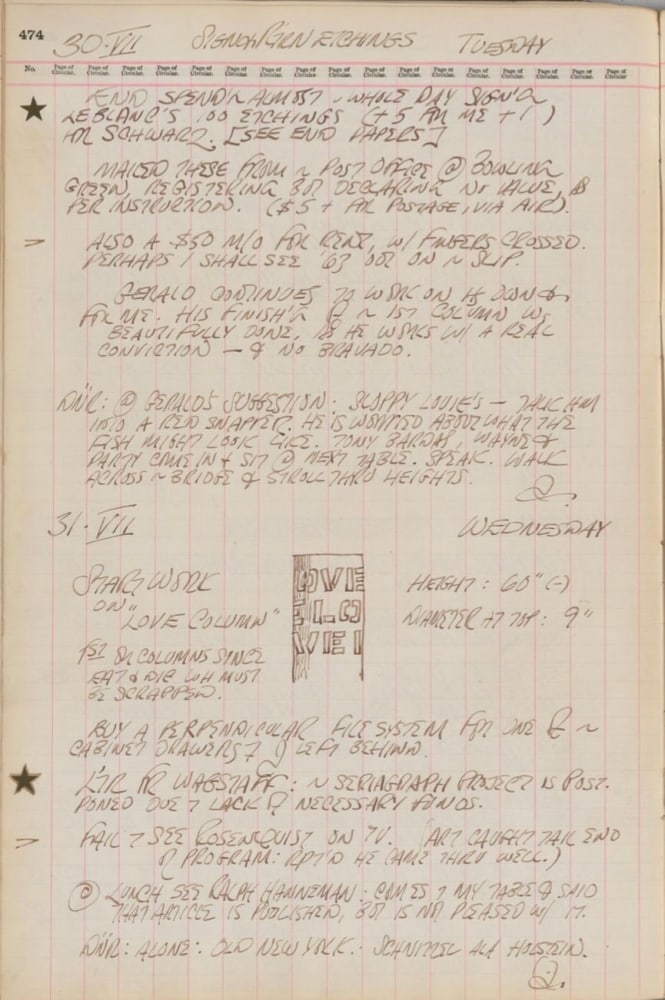 474
30·VII SIGN'G/P'G'RN ETCHINGS TUESDAY
No. Page of Circular. Page of Circular. Page of Circular. Page of Circular. Page of Circular. Page of Circular. Page of Circular. Page of Circular. Page of Circular. Page of Circular. Page of Circular. Page of Circular. Page of Circular. Page of Circular. Page of Circular. Page of Circular. Page of Circular.
END SPEND'G ALMOST ~ WHOLE DAY SIGN'G
LEBLANC'S 100 ETCHINGS (+ 5 FR ME + 1 )
FR SCHWARZ. [SEE END PAPERS]
MAILED THESE FROM ~ POST OFFICE @ BOWLING
GREEN, REGISTERING BUT DECLARING NO VALUE, AS
PER INSTRUCTION. ($5 + FR POSTAGE, VIA AIR).
ALSO A $50 M/O FOR RENT, W/ FINGERS CROSSED.
PERHAPS I SHALL SEE '63 OUT ON ~ SLIP.
GERALD CONTINUES TO WORK ON
FOR ME. HIS FINISH'G OF ~ 1ST COLUMN WS
BEAUTIFULLY DONE, AS HE WORKS W/ A REAL
CONVICTION — & NO BRAVADO.
DNR: @ GERALD'S SUGGESTION: SLOPPY LOUIE'S — TALK HIM
INTO A RED SNAPPER. HE IS WORRIED ABOUT WHAT THE
FISH MIGHT LOOK LIKE. TONY BARDAS, WAYNE &
PARTY COME IN & SIT @ NEXT TABLE. SPEAK. WALK
ACROSS ~ BRIDGE & STROLL THRU HEIGHTS.
31·VII WEDNESDAY
START WORK
ON "
LOVE COLUMN"
OVE
ELO
VEI
HEIGHT: 60" (-)
DIAMETER AT TOP: 9"
1ST OF COLUMNS SINCE
EAT & DIE WH MUST
BE SCRAPPED.
BUY A PERPENDICULAR FILE SYSTEM FOR ONE OF ~
CABINET DRAWERS LEFT BEHIND.
LTR FR WAGSTAFF: ~ SERIAGRAPH PROJECT IS POST-
PONED DUE T LACK OF NECESSARY FUNDS.
FAIL T SEE ROSENQUIST ON TV. (ART CAUGHT TAIL END
OF PROGRAM: RPT'D HE CAME THRU WELL.)
@ LUNCH SEE RALPH HANNEMAN: COMES T MY TABLE & SAID
THAT ARTICLE IS PUBLISHED, BUT IS NOT PLEASED W/ IT.
DNR: ALONE: OLD NEW YORK. SCHNITZEL ALA HOLSTEIN.